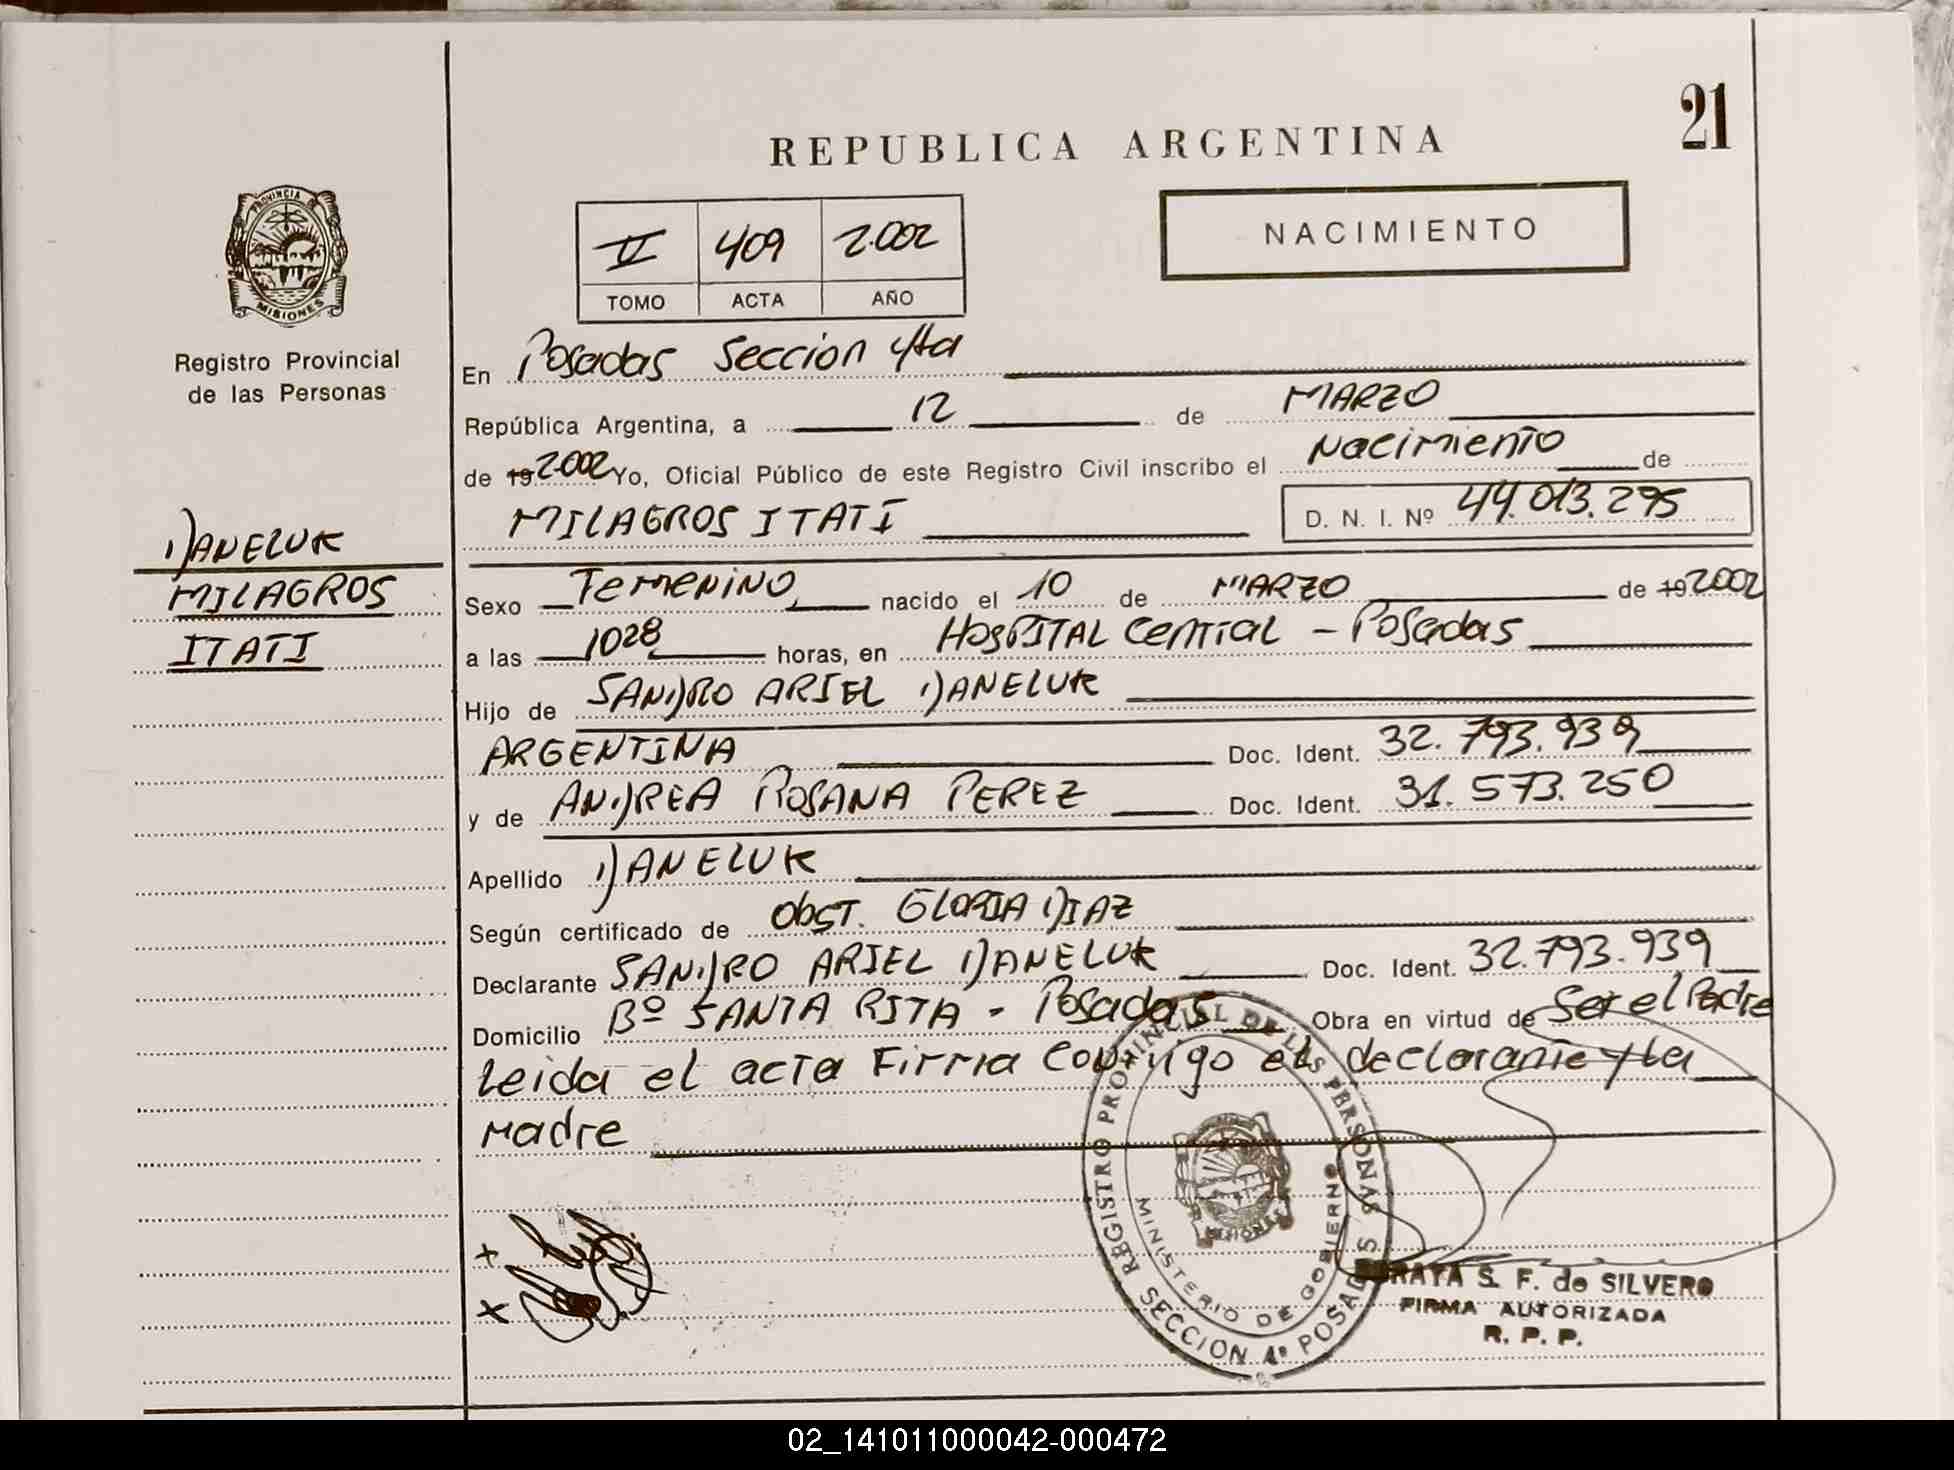 21
REPUBLICA ARGENTINA
PROVINCIA DE
MISIONES
Registro Provincial
de las Personas
II 409 2.002
TOMO ACTA AÑO
NACIMIENTO
En Posadas Seccion 4ta
República Argentina, a 12 de MARZO
de 19 2002 Yo, Oficial Público de este Registro Civil inscribo el Nacimiento de
MILAGROS ITATI D. N. I. Nº 44.013.295
DANELUK
MILAGROS
ITATI
Sexo Femenino nacido el 10 de MARZO de 19 2002
a las 1028 horas, en HOSPITAL Central - Posadas
Hijo de SANDRO ARIEL DANELUK
ARGENTINA Doc. Ident. 32.793.939
y de ANDREA ROSANA PEREZ Doc. Ident. 31.573.250
Apellido DANELUK
Según certificado de Obst. GLORIA DIAZ
Declarante SANDRO ARIEL DANELUK Doc. Ident. 32.793.939
Domicilio Bº SANTA RITA - Posadas Obra en virtud de Ser el Padre
Leida el acta Firma Conmigo el declarante y la
Madre
REGISTRO PROVINCIAL DE LAS PERSONAS
MINISTERIO DE GOBIERNO
MISIONES
SECCION 4ª POSADAS
S. F. de SILVERO
FIRMA AUTORIZADA
R. P. P.
02_141011000042-000472